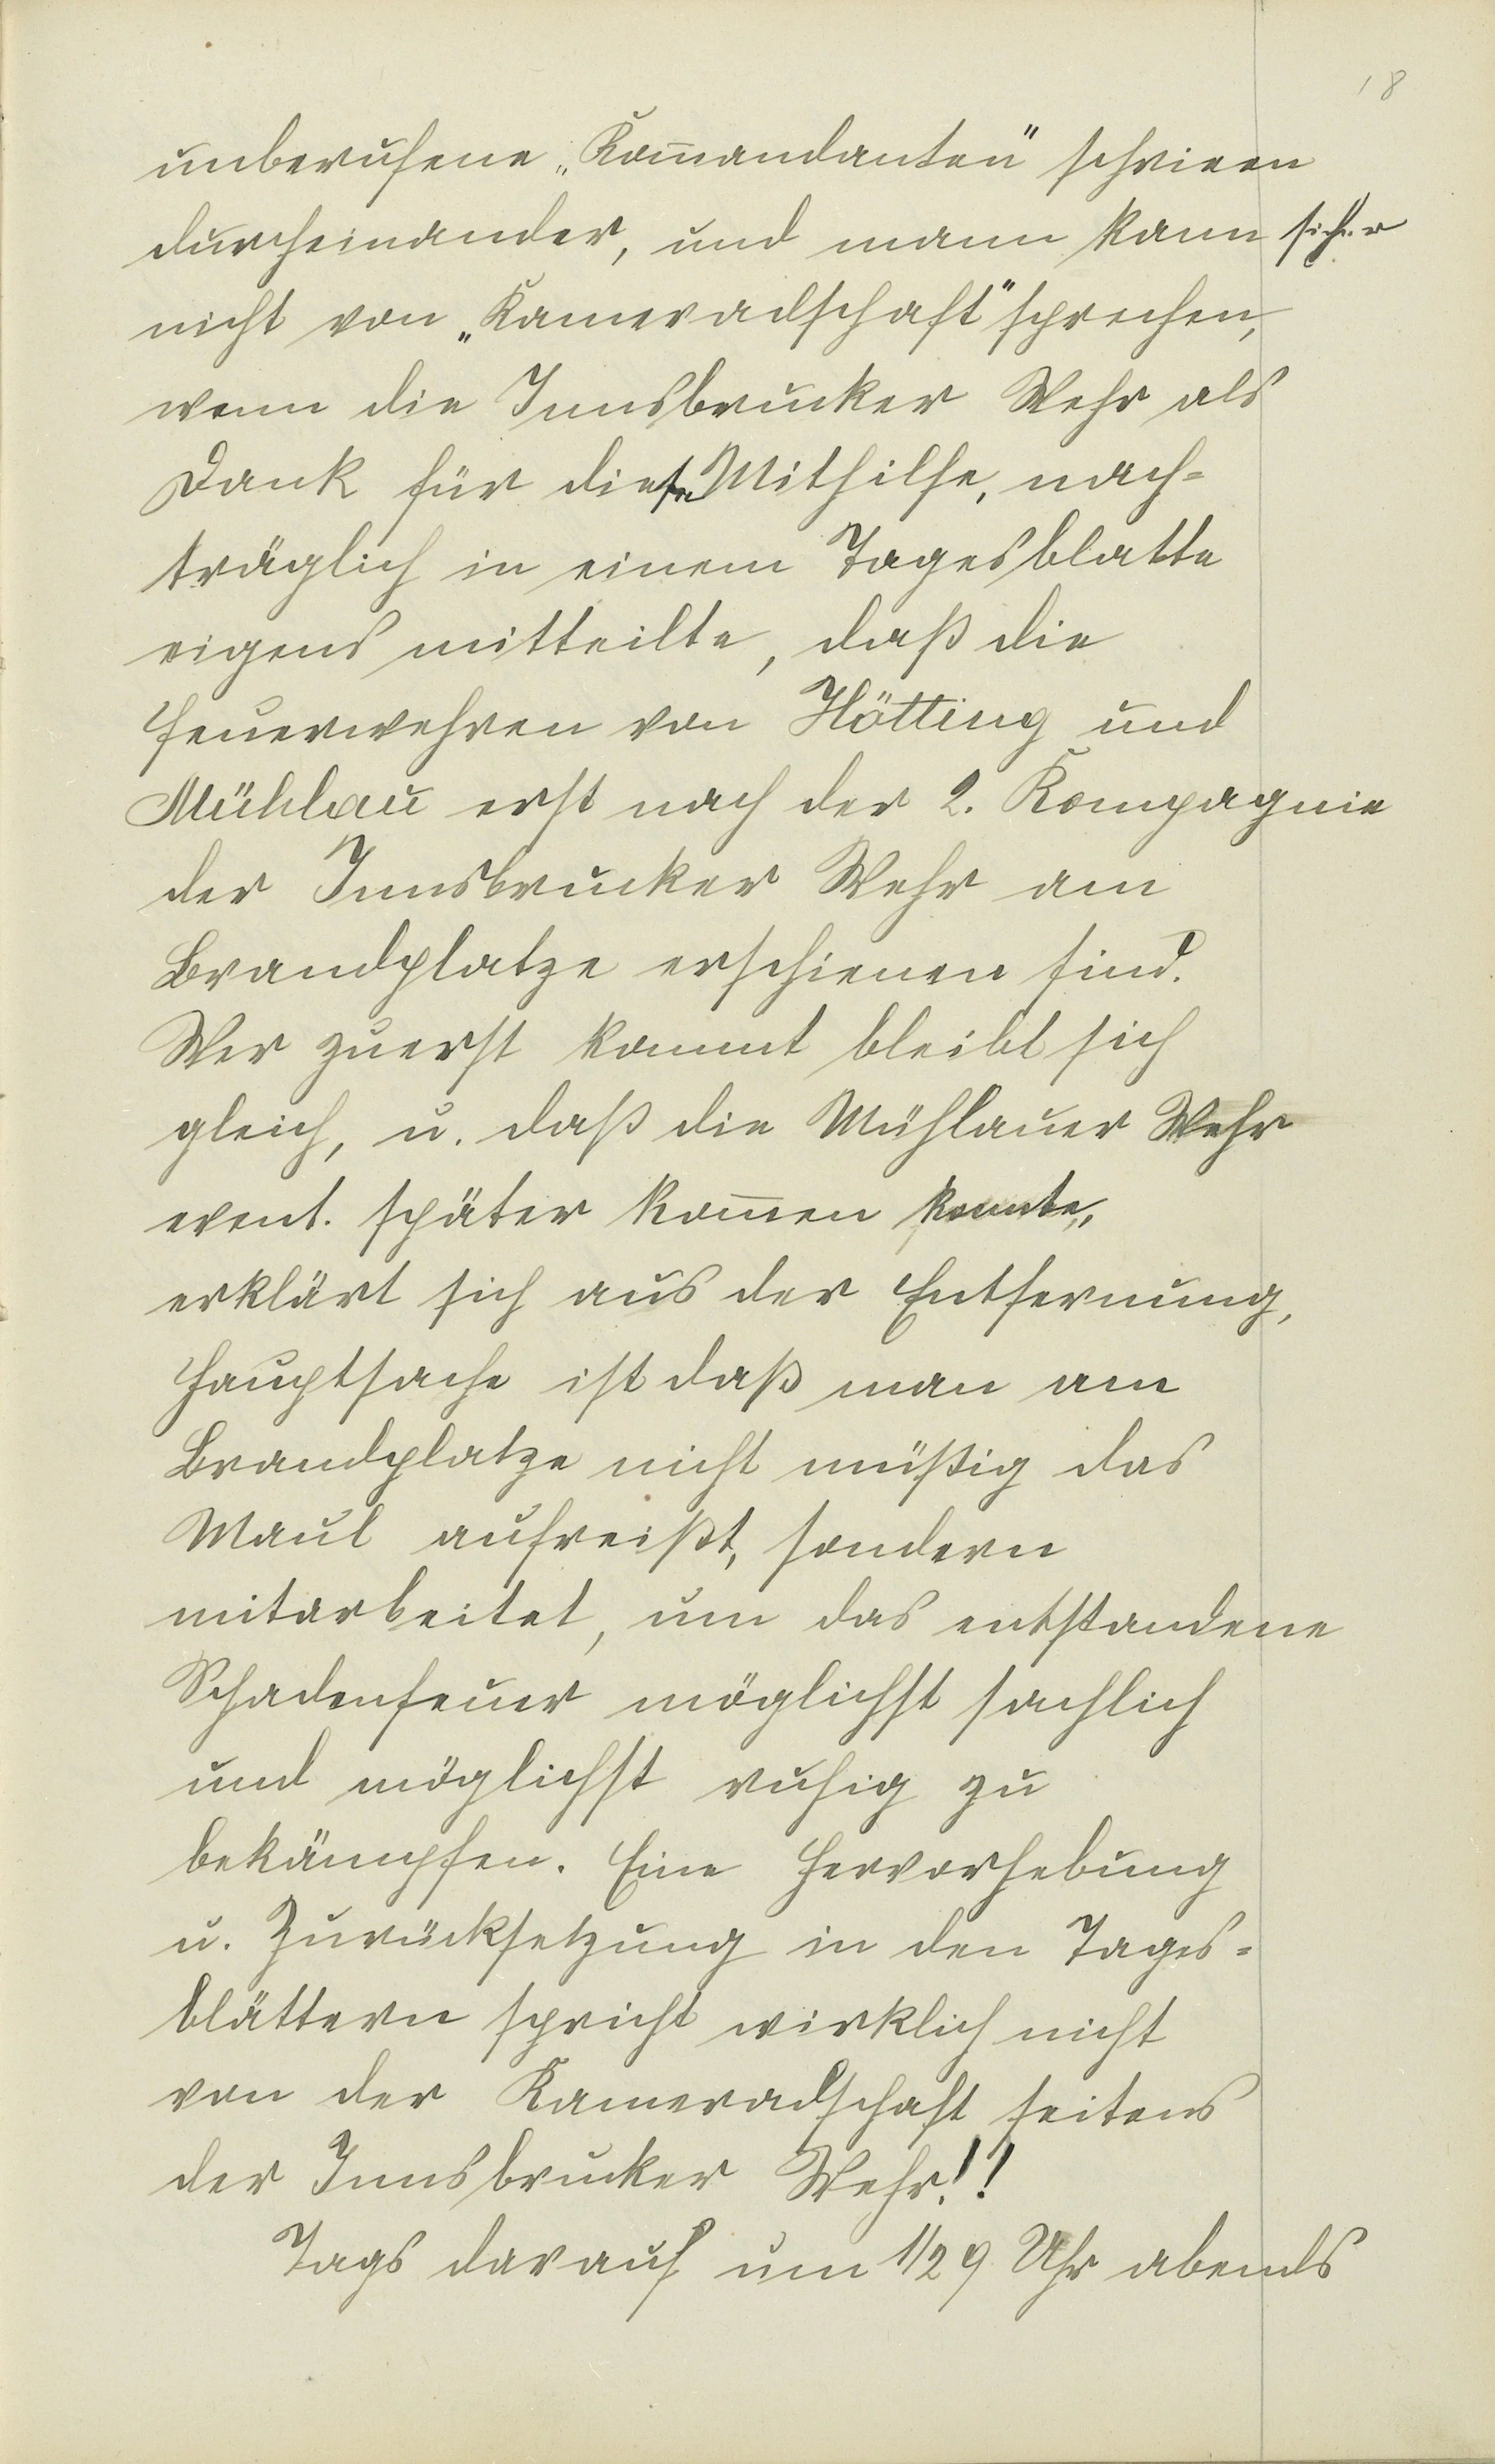 18
unberufene „Kom̅andanten" schrieen
durcheinander, und mann kann sicher
nicht von „Kameradschaft" sprechen,
wenn die Innsbrucker Wehr als
Dank für diese Mithilfe, nach-
träglich in einem Tagesblatte
eigens mitteilte, daß die
Feuerwehren von Hötting und
Mühlau erst nach der 2. Kompagnie
der Innsbrucker Wehr am
Brandplatze erschienen sind.
Wer zuerst kommt bleibt sich
gleich, u. daß die Mühlauer Wehr
event. später kom̅en konnte,
erklärt sich aus der Entfernung,
Hauptsache ist daß man am
Brandplatze nicht müßig das
Maul aufreißt, sondern
mitarbeitet, um das entstandene
Schadenfeuer möglichst sachlich
und möglichst ruhig zu
bekämpfen. Eine Hervorhebung
u. Zurücksetzung in den Tages-
blättern spricht wirklich nicht
von der Kameradschaft seitens
der Innsbrucker Wehr!!
Tags darauf um 1/2 9 Uhr abends